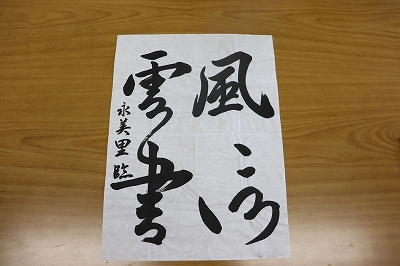 風信
雲書
永美里臨